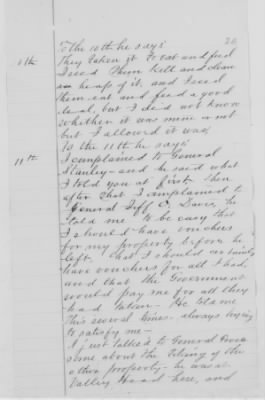 To the 10th he says
11th
They taken it to eat and feed
I seed them kill and clean
a heap of it and I seed
them eat and feed a good
deal, but I did not know
whether it was mine or not
but I allowed it was
To the 11th he says
11th
I complained to General
Stanley - and he said what
I told you at first, then
after that I complained to
General Jeff C. Davis, he
told me to be easy that
I should have vouchers
for my property before he
left, that I should certainly
have vouchers for all I had,
and that the Government
would pay me for all they
had taken - He told me
this several times - always trying
to satisfy me -
I just talked to General
some about the taking of the
other property - he was at
Valley Head here, and